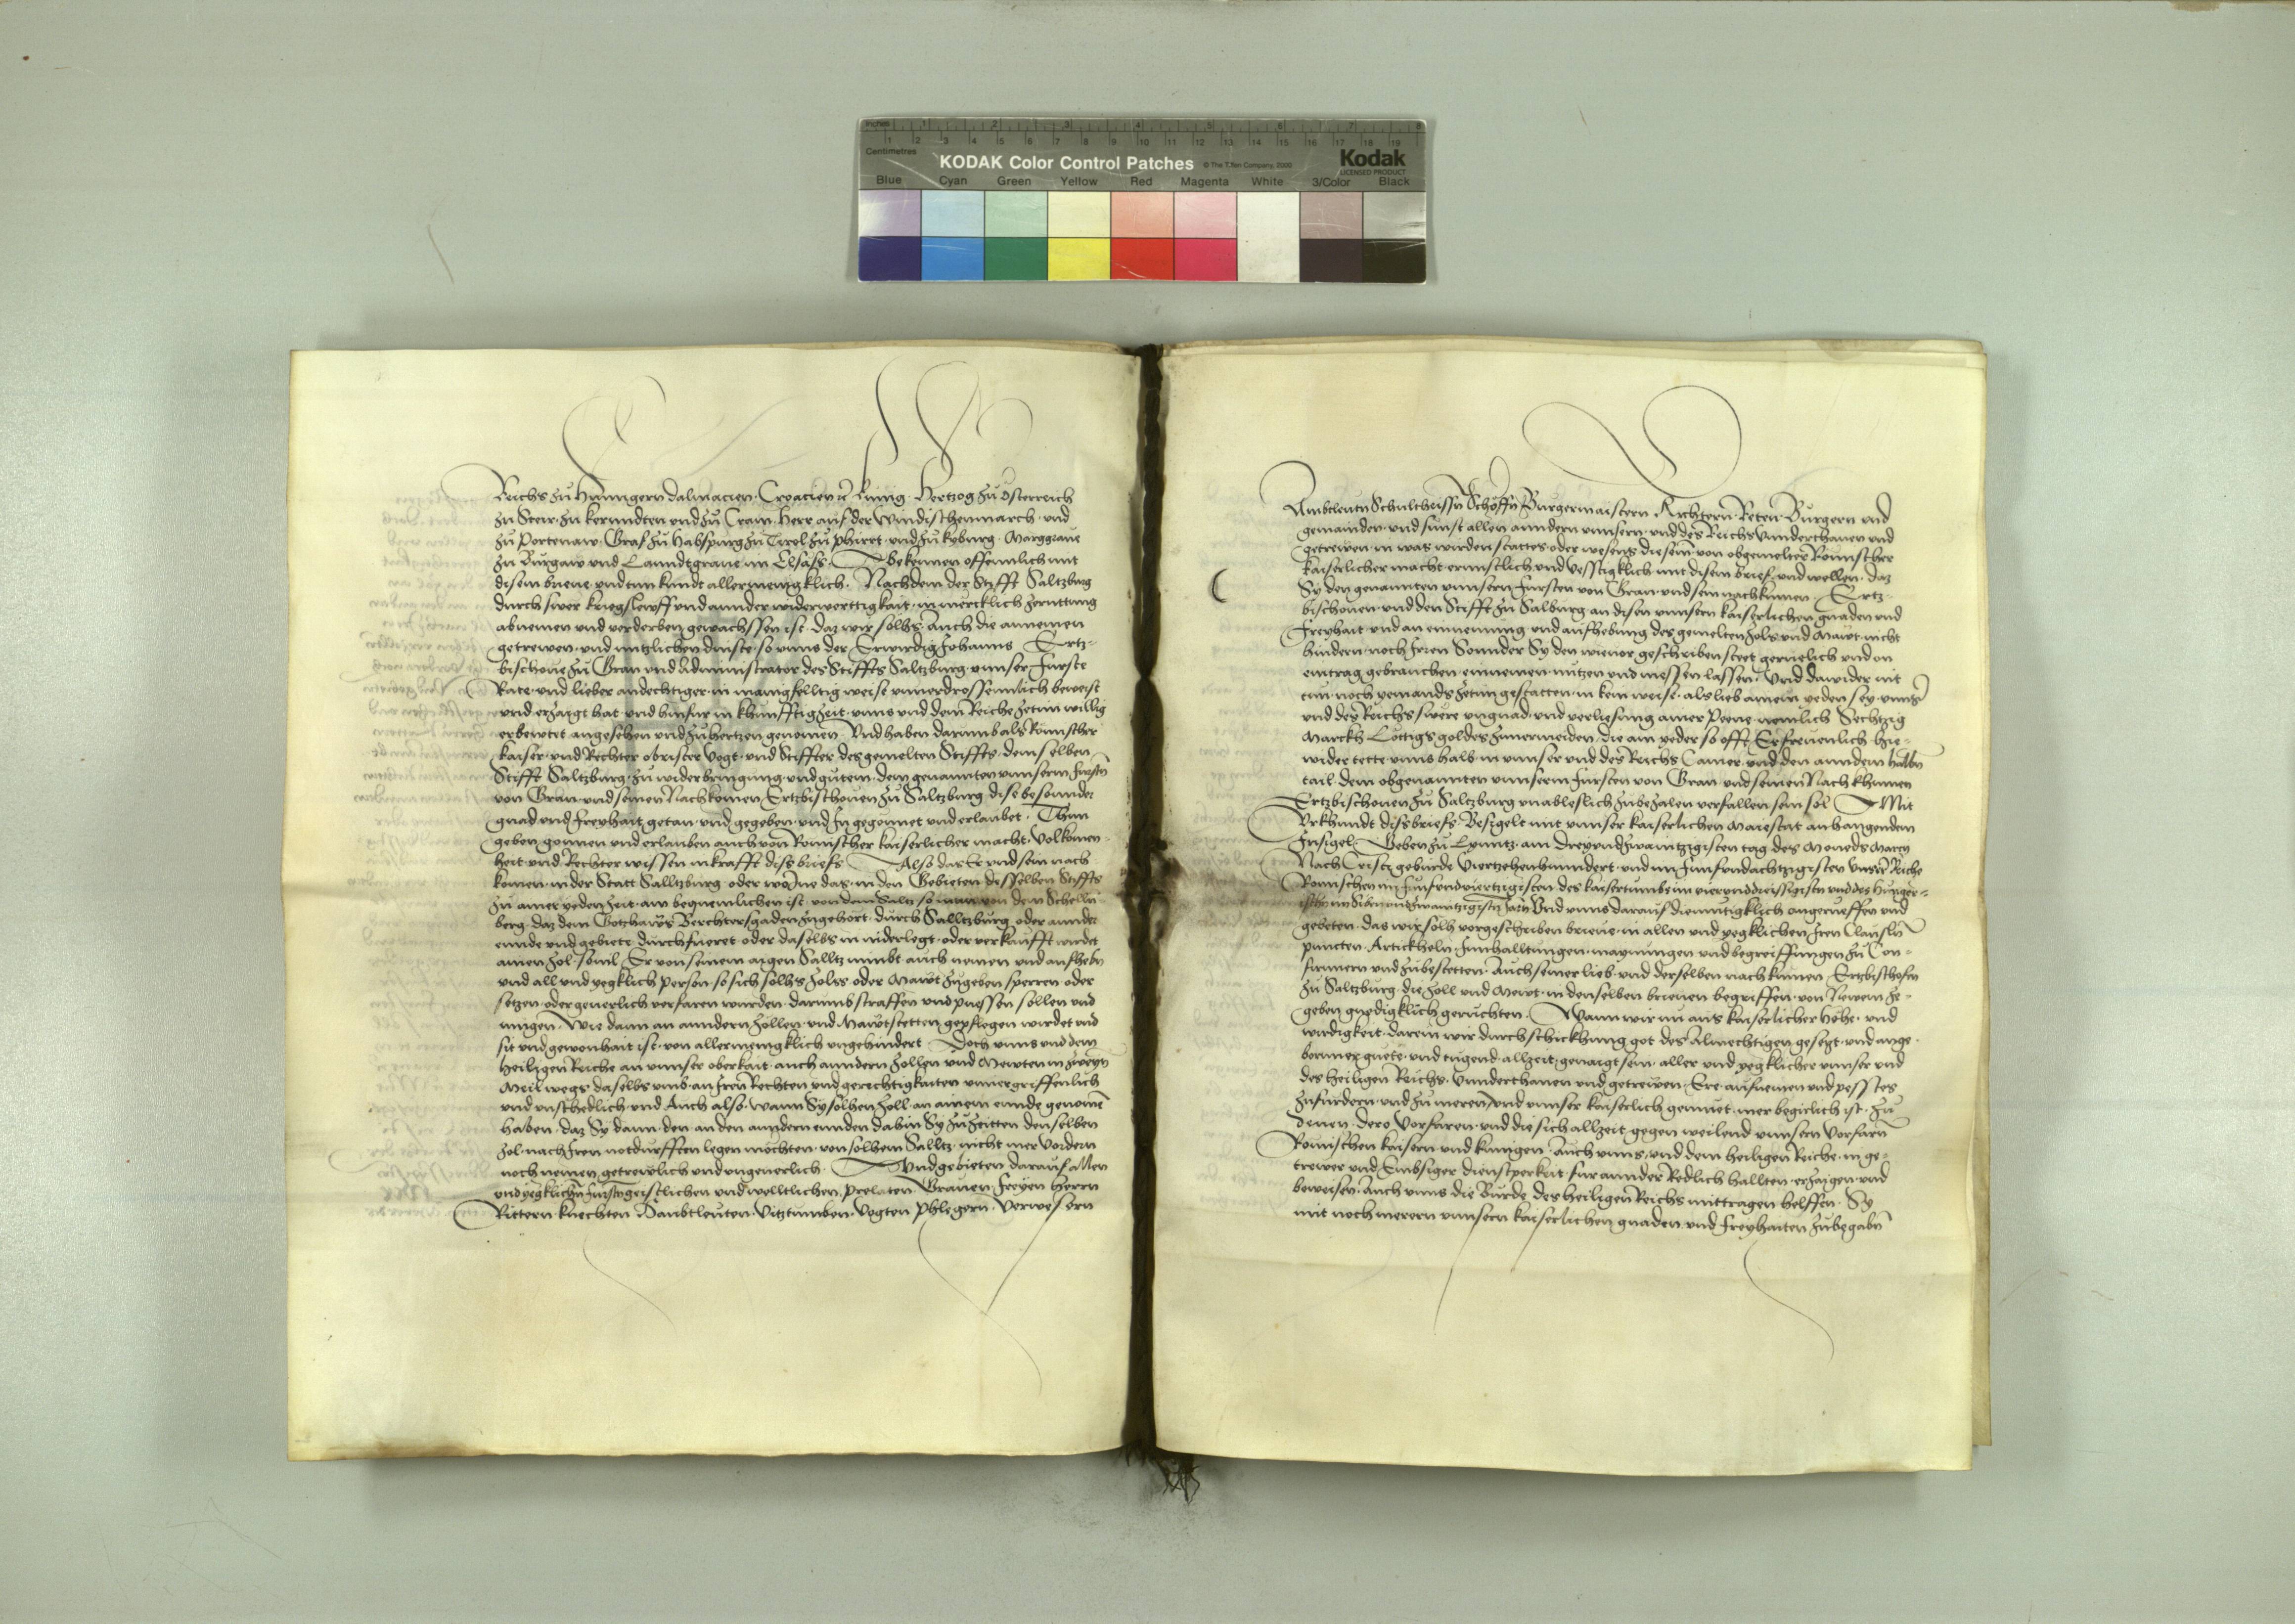 inches 1 2 3 4 5 6 7 8
Centimetres 1 2 3 4 5 6 7 8 9 10 11 12 13 14 15 16 17 18 19
KODAK Color Control Patches © The Tiffen Company, 2000 Kodak
LICENSED PRODUCT
Blue Cyan Green Yellow Red Magenta White 3/Color Black
Reichs zu Hunngern Dalmacien Croacien kunig Hertzog zu Osterreich
zu Steir zu kernndten vnd zu Crain Herr auf der Windischenmarch vnd
zu Portenaw Graf zu Habspurg zu Tirol zu phirrt vnd zu kyburg Marggraue
zu Burgaw vnd Lanndtgraue im Elsass Bekennen offennlich mit
disem brieue vnd tun kundt allermenigklich Nachdem der Stifft Saltzburg
durch swer kriegslewff vnd annder widerwerttigkait in mercklich zeruttung
abnemen vnd verderben gewachssen ist daz wir solhs auch die annemen
getrewen vnd nutzlichen dinste so vnns der Erwirdig Johanns Ertz-
bischoue zu Gran vnd Administrator des Stiffts Saltzburg vnnser Furste
Rate vnd lieber andechtiger in manigfelltig weise vnuerdrossennlich beweist
vnd erzaigt hat vnd hinfur in khunfftigzeit vnns vnd dem Reiche zetun willig
erbewtet angesehen vnd zu hertzen genomen Vnd haben darumb als Romischer
kaiser vnd Rechter obrister Vogt vnd Stiffter des gemelten Stiffts demselben
Stifft Saltzburg zu widerbringung vnd gutem dem genannten vnnserm fursten
von Gran vnd seinen Nachkomen Ertzbischouen zu Saltzburg dise besonnder
gnad vnd Freyhait getan vnd gegeben vnd In gegonnet vnd erlaubet Thun
geben gonnen vnd erlauben auch von Romischer kaiserlicher macht Volkomen-
heit vnd Rechter wissen in krafft diss briefs Also das Er vnd sein nach
komen in der Statt Salltzburg oder wo Ine das in den Gebieten desselben Stiffts
zu ainer yeden zeit am bequemlichen ist von dem Saltz so man von dem Schelln
berg daz dem Gotzhaws Berchtersgaden zugehort durch Salltzburg oder annder
ennde vnd gebiete durchfueret oder daselbs in niderlegt oder verkaufft wirdet
ainen zol souil Er von seinem aigen Salltz nimbt auch nemen vnd aufheben
vnd all vnd yegklich person so sich solhs zolss oder Mawt zugeben sperren oder
setzen oder geuerlich verfaren wurden darumb straffen vnd puessen sollen vnd
mugen Wie dann an anndern zollen vnd Mawtstetten gepflegen wirdet vnd
sit vnd gewonhait ist von allermenigklich vngehindert Doch vnns vnd dem
Heiligen Reiche an vnnser oberkait auch anndern zollen vnd Mewten in zweyn
Meil wegs daselbs vmb an Iren Rechten vnd gerechtigkaiten vnuergriffenlich
vnd vnschedlich vnd Auch also wann Sy solhen zoll an ainem ennde genomen
haben daz Sy dann den an den anndern ennden dahin Sy zu zeitten denselben
zol nach Iren notdurfften legen mochten von solhem Salltz nicht mer Vordern
noch nemen getrewlich vnd vngeuerlich Vnd gebieten darauf allen
vnd yegklichen fursten geistlichen vnd welltlichen Prelaten Grauen Freyen Herrn
Rittern knechten Haubtleuten Vitztumben Vogten Phlegern Verwesern
Ambtleutn Schulthaissn Schoffn Burgermaistern Richtern Reten Burgern vnd
gemainden vnd sunst allen anndern vnnsern vnd des Reichs Vnnderthanen vnd
getrewen in was wirden stattes oder wesens die sein von obgemelter Romischer
kaiserlicher macht ernnstlich vnd vesstigklich mit disem brief vnd wellen daz
Sy den genannten vnnsern Fursten von Gran vnd sein nachkumen Ertz-
bischouen vnd den Stifft zu Salburg an disen vnnsern kaiserlichen gnaden vnd
Freyhait vnd an einnemung vnd aufhebung des gemelten zols vnd Mawt nicht
hindern noch Irren Sonnder Sy den wieuor geschriben steet geruelich vnd on
eintrag gebrauchen einnemen nutzen vnd niessen lassen Vnd dawider nit
tun noch yemands zetun gestatten in kein weise als lieb ainem yeden sey vnnser
vnd des Reichs swere vngnad vnd verliesung ainer Peene nemlich Sechtzig
Marckh Lottigs goldes zuuermeiden die ain yeder so offt Er freuenlich hie-
wider tette vnns halb in vnnser vnd des Reichs Camer vnd den anndern halbn
tail dem obgenannten vnnserm Fursten von Gran vnd seinen Nachkhumen
Ertzbischouen zu Saltzburg vnableslich zubezalen verfallen sein sol Mit
Vrkhundt diss briefs Besigelt mit vnnser kaiserlichen Maiestat anhangendem
Insigel Geben zu Lynntz am Dreyvndzwaintzigisten tag des Moneds Marcy
Nach Cristi geburde Viertzehenhundert vnd im Funfvndachtzigisten Vnsrer Reiche
Romischen im Funfvndviertzigisten des kaiserthumbs im viervnddreissigisten vnd des Hunger-
ischen im Sibenvndzwaintzigisten Jarn Vnd vnns darauf diemutigklich angeruefft vnd
gebeten das wir solh vorgeschriben brieue in allen vnd yegklichen Iren Clausln
puncten Artickheln Innhalltungen maynungen vnd begreiffungen zu Con-
firmiern vnd zubestetten Auch seiner lieb vnd derselben nachkumen Ertzbischofn
zu Saltzburg die zoll vnd Mewt in denselben brieuen begriffen von Newem ze-
geben gnedigklich geruchten Wann wir nu aus kaiserlicher Hohe vnd
wirdigkeit darein wir durch schickhung got des Almechtigen gesetzt vnd ange-
borner guete vnd tugend allzeit genaigt sein aller vnd yegklicher vnnser vnd
des heiligen Reichs Vnnderthanen vnd getrewen Ere aufnemen vnd pesstes
zufurdern vnd zu meren vnd vnnser kaiserlich gemuet mer begirlich ist zu
denen dero Vorfaren vnd die sich allzeit gegen weilend vnnsern Vorfarn
Romischen kaisern vnd kunigen Auch vnns vnd dem heiligen Reiche in ge-
trewer vnd Embsiger dienstperkait fur annder Redlich hallten erzaigen vnd
beweisen Auch vnns die Burde des heiligen Reichs mittragen helffen Sy
mit noch merern vnnsern kaiserlichen gnaden vnd Freyhaiten zubegabn